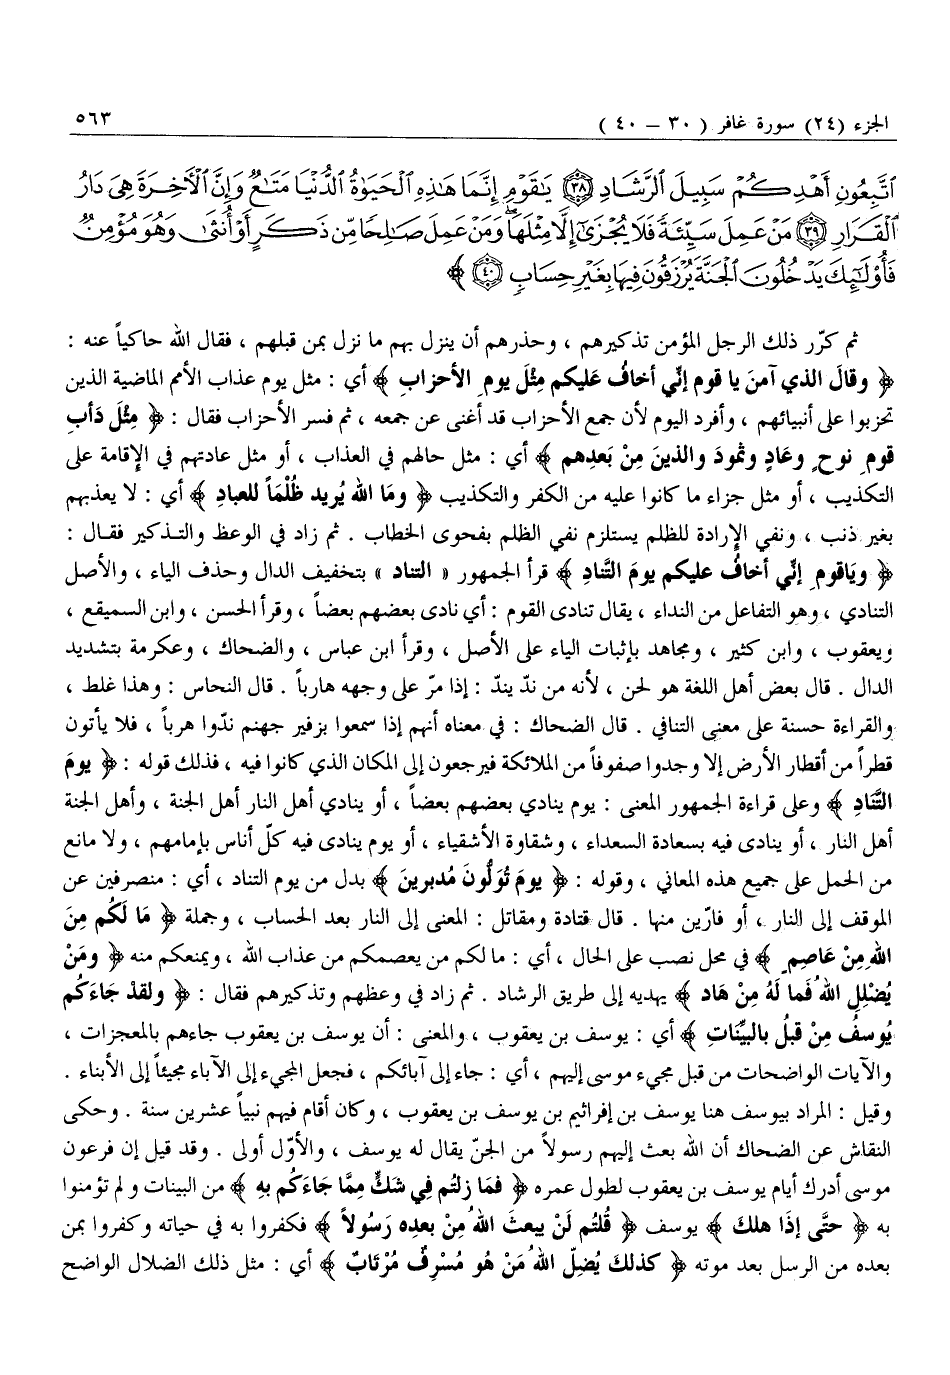 الجزء (٢٤) سورة غافر ( ٣٠ – ٤٠ ) ٥٦٣
ٱتَّبِعُونِ أَهْدِكُمْ سَبِيلَ ٱلرَّشَادِ ﴿٣٨﴾ يَٰقَوْمِ إِنَّمَا هَٰذِهِ ٱلْحَيَوٰةُ ٱلدُّنْيَا مَتَٰعٌ وَإِنَّ ٱلْأَخِرَةَ هِىَ دَارُ
ٱلْقَرَارِ ﴿٣٩﴾ مَنْ عَمِلَ سَيِّئَةً فَلَا يُجْزَىٰٓ إِلَّا مِثْلَهَا ۖ وَمَنْ عَمِلَ صَٰلِحًا مِّن ذَكَرٍ أَوْ أُنثَىٰ وَهُوَ مُؤْمِنٌ
فَأُو۟لَٰٓئِكَ يَدْخُلُونَ ٱلْجَنَّةَ يُرْزَقُونَ فِيهَا بِغَيْرِ حِسَابٍ ﴿٤٠﴾ ﴾
ثم كرّر ذلك الرجل المؤمن تذكيرهم ، وحذرهم أن ينزل بهم ما نزل بمن قبلهم ، فقال الله حاكياً عنه :
﴿ وقالَ الذي آمنَ يا قوم إنّي أخافُ عَليكم مِثْلَ يومِ الأحزابِ ﴾ أي : مثل يوم عذاب الأمم الماضية الذين
تحزبوا على أنبيائهم ، وأفرد اليوم لأن جمع الأحزاب قد أغنى عن جمعه ، ثم فسر الأحزاب فقال : ﴿ مِثْلَ دَأبِ
قومِ نوحٍ وعَادٍ وثمودَ والذينَ مِنْ بَعدِهم ﴾ أي : مثل حالهم في العذاب ، أو مثل عادتهم في الإقامة على
التكذيب ، أو مثل جزاء ما كانوا عليه من الكفر والتكذيب ﴿ وما اللهُ يُريد ظُلْمَاً للعبادِ ﴾ أي : لا يعذبهم
بغير ذنب ، ونفي الإرادة للظلم يستلزم نفي الظلم بفحوى الخطاب . ثم زاد في الوعظ والتذكير فقال :
﴿ ويَاقومِ إنّي أخافُ عليكم يومَ التَّنادِ ﴾ قرأ الجمهور « التناد » بتخفيف الدال وحذف الياء ، والأصل
التنادي ، وهو التفاعل من النداء ، يقال تنادى القوم : أي نادى بعضهم بعضاً ، وقرأ الحسن ، وابن السميقع ،
ويعقوب ، وابن كثير ، ومجاهد بإثبات الياء على الأصل ، وقرأ ابن عباس ، والضحاك ، وعكرمة بتشديد
الدال . قال بعض أهل اللغة هو لحن ، لأنه من ندّ يندّ : إذا مرّ على وجهه هارباً . قال النحاس : وهذا غلط ،
والقراءة حسنة على معنى التنافي . قال الضحاك : في معناه أنهم إذا سمعوا بزفير جهنم ندّوا هرباً ، فلا يأتون
قطراً من أقطار الأرض إلا وجدوا صفوفاً من الملائكة فيرجعون إلى المكان الذي كانوا فيه ، فذلك قوله : ﴿ يومَ
التَّنادِ ﴾ وعلى قراءة الجمهور المعنى : يوم ينادي بعضهم بعضاً ، أو ينادي أهل النار أهل الجنة ، وأهل الجنة
أهل النار ، أو ينادى فيه بسعادة السعداء ، وشقاوة الأشقياء ، أو يوم ينادى فيه كلّ أناس بإمامهم ، ولا مانع
من الحمل على جميع هذه المعاني ، وقوله : ﴿ يومَ تُوَلُّونَ مُدبرينَ ﴾ بدل من يوم التناد ، أي : منصرفين عن
الموقف إلى النار ، أو فارّين منها . قال قتادة ومقاتل : المعنى إلى النار بعد الحساب ، وجملة ﴿ مَا لَكُم مِنَ
اللهِ مِنْ عَاصِمٍ ﴾ في محل نصب على الحال ، أي : ما لكم من يعصمكم من عذاب الله ، ويمنعكم منه ﴿ ومَنْ
يُضْلِلِ اللهُ فما لَهُ مِنْ هَاد ﴾ يهديه إلى طريق الرشاد . ثم زاد في وعظهم وتذكيرهم فقال : ﴿ ولقدْ جَاءَكُم
يُوسفُ مِنْ قبلُ بالبيِّناتِ ﴾ أي : يوسف بن يعقوب ، والمعنى : أن يوسف بن يعقوب جاءهم بالمعجزات ،
والآيات الواضحات من قبل مجيء موسى إليهم ، أي : جاء إلى آبائكم ، فجعل المجيء إلى الآباء مجيئاً إلى الأبناء .
وقيل : المراد بيوسف هنا يوسف بن إفراثيم بن يوسف بن يعقوب ، وكان أقام فيهم نبياً عشرين سنة . وحكى
النقاش عن الضحاك أن الله بعث إليهم رسولاً من الجنّ يقال له يوسف ، والأوّل أولى . وقد قيل إن فرعون
موسى أدرك أيام يوسف بن يعقوب لطول عمره ﴿ فمَا زلتُم فِي شكٍّ مِمَّا جَاءَكُم بهِ ﴾ من البينات ولم تؤمنوا
به ﴿ حتَّى إذَا هلكَ ﴾ يوسف ﴿ قُلتُم لَنْ يبعثَ اللهُ مِنْ بعده رَسُولاً ﴾ فكفروا به في حياته وكفروا بمن
بعده من الرسل بعد موته ﴿ كذلكَ يُضِلّ اللهُ مَنْ هُو مُسْرِفٌ مُرْتَابٌ ﴾ أي : مثل ذلك الضلال الواضح